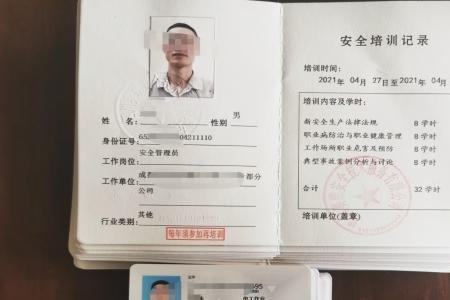 姓 名： 性别 男
身份证号： 65 04211110
工作岗位： 安全管理员
工作单位： 成 部分
公司
行业类别： 其他
每年须参加再培训
安全培训记录
培训时间：
2021年 04月 27日至2021年 04月
培训内容及学时：
新安全生产法律法规 8 学时
职业病防治与职业健康管理 8 学时
工作场所职业危害及预防 8 学时
典型事故案例分析与讨论 8 学时
合计 32 学时
培训单位(盖章)